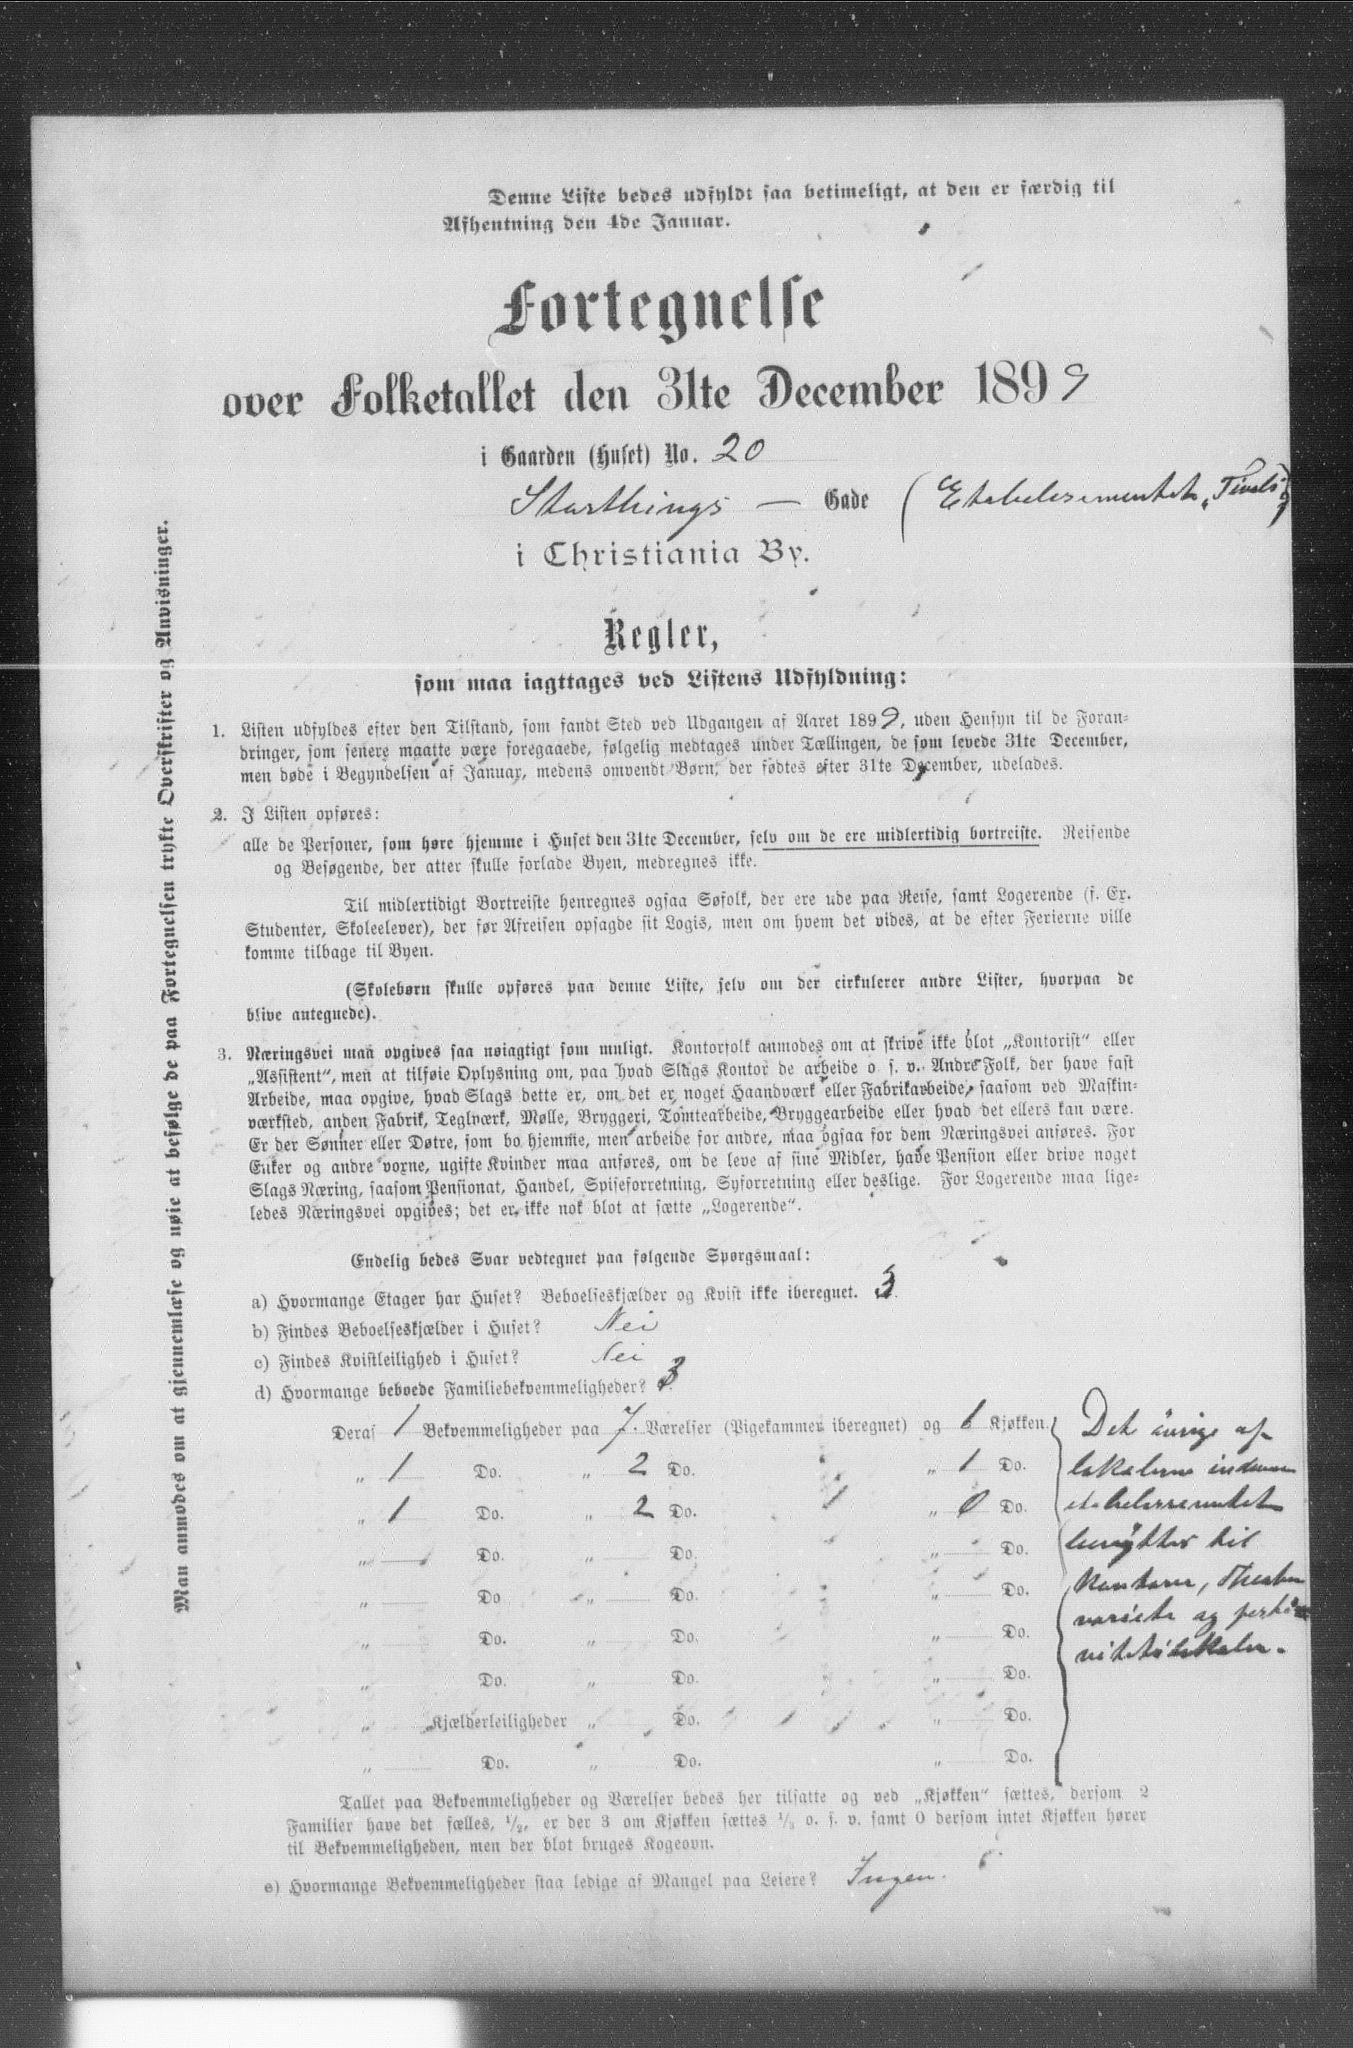 Denne Liste bedes udfyldt saa betimeligt, at den er færdig til
Afhentning den 4de Januar.
Fortegnelse
over Folketallet den 31te December 1899
i Gaarden (Huset) No. 20
Storthings — Gade (Etablissementet „Tivoli")
i Christiania By.
Regler,
som maa iagttages ved Listens Udfyldning:
1. Listen udfyldes efter den Tilstand, som fandt Sted ved Udgangen af Aaret 1899, uden Hensyn til de Foran-
dringer, som senere maatte være foregaaede, følgelig medtages under Tællingen, de som levede 31te December,
men døde i Begyndelsen af Januar, medens omvendt Børn, der fødtes efter 31te December, udelades.
2. I Listen opføres:
alle de Personer, som høre hjemme i Huset den 31te December, selv om de ere midlertidig bortreiste. Reisende
og Besøgende, der atter skulle forlade Byen, medregnes ikke.
Til midlertidigt Bortreiste henregnes ogsaa Søfolk, der ere ude paa Reise, samt Logerende (f. Ex.
Studenter, Skoleelever), der før Afreisen opsagde sit Logis, men om hvem det vides, at de efter Ferierne ville
komme tilbage til Byen.
(Skolebørn skulle opføres paa denne Liste, selv om der cirkulerer andre Lister, hvorpaa de
blive antegnede).
3. Næringsvei maa opgives saa nøiagtigt som muligt. Kontorfolk anmodes om at skrive ikke blot „Kontorist" eller
„Assistent", men at tilføie Oplysning om, paa hvad Slags Kontor de arbeide o. s. v. Andre Folk, der have fast
Arbeide, maa opgive, hvad Slags dette er, om det er noget Haandværk eller Fabrikarbeide, saasom ved Maskin-
værksted, anden Fabrik, Teglværk, Mølle, Bryggeri, Tomtearbeide, Bryggearbeide eller hvad det ellers kan være.
Er der Sønner eller Døtre, som bo hjemme, men arbeide for andre, maa ogsaa for dem Næringsvei anføres. For
Enker og andre voxne, ugifte Kvinder maa anføres, om de leve af sine Midler, have Pension eller drive noget
Slags Næring, saasom Pensionat, Handel, Spiseforretning, Syforretning eller deslige. For Logerende maa lige-
ledes Næringsvei opgives; det er ikke nok blot at sætte „Logerende".
Endelig bedes Svar vedtegnet paa følgende Spørgsmaal:
a) Hvormange Etager har Huset? Beboelseskjælder og Kvist ikke iberegnet. 3
b) Findes Beboelseskjælder i Huset? Nei
c) Findes Kvistleilighed i Huset? Nei
d) Hvormange beboede Familiebekvemmeligheder? 3
Deraf 1 Bekvemmeligheder paa 7. Værelser (Pigekammer iberegnet) og 1 Kjøkken.
„ 1 Do. „ 2 Do. „ 1 Do.
„ 1 Do. „ 2 Do. „ 0 Do.
„ Do. „ Do. „ Do.
„ Do „ Do. „ Do.
„ Do. „ Do. „ Do.
„ Do. „ Do. „ Do.
„ Kjælderleiligheder „ Do. „ Do.
„ Do. „ Do. „ Do.
Det øvrige af
lokalerne
etablissementet
benyttes til
Kontorer, Theater
varieté og
lokaler.
Tallet paa Bekvemmeligheder og Værelser bedes her tilsatte og ved „Kjøkken" sættes, dersom 2
Familier have det fælles, 1/2, er der 3 om Kjøkken sættes 1/3 o. s. v. samt 0 dersom intet Kjøkken hører
til Bekvemmeligheden, men der blot bruges Kogeovn.
e) Hvormange Bekvemmeligheder staa ledige af Mangel paa Leiere? Ingen.
Man anmodes om at gjennemlæse og nøie at befølge de paa Fortegnelsen trykte Overskrifter og Anvisninger.